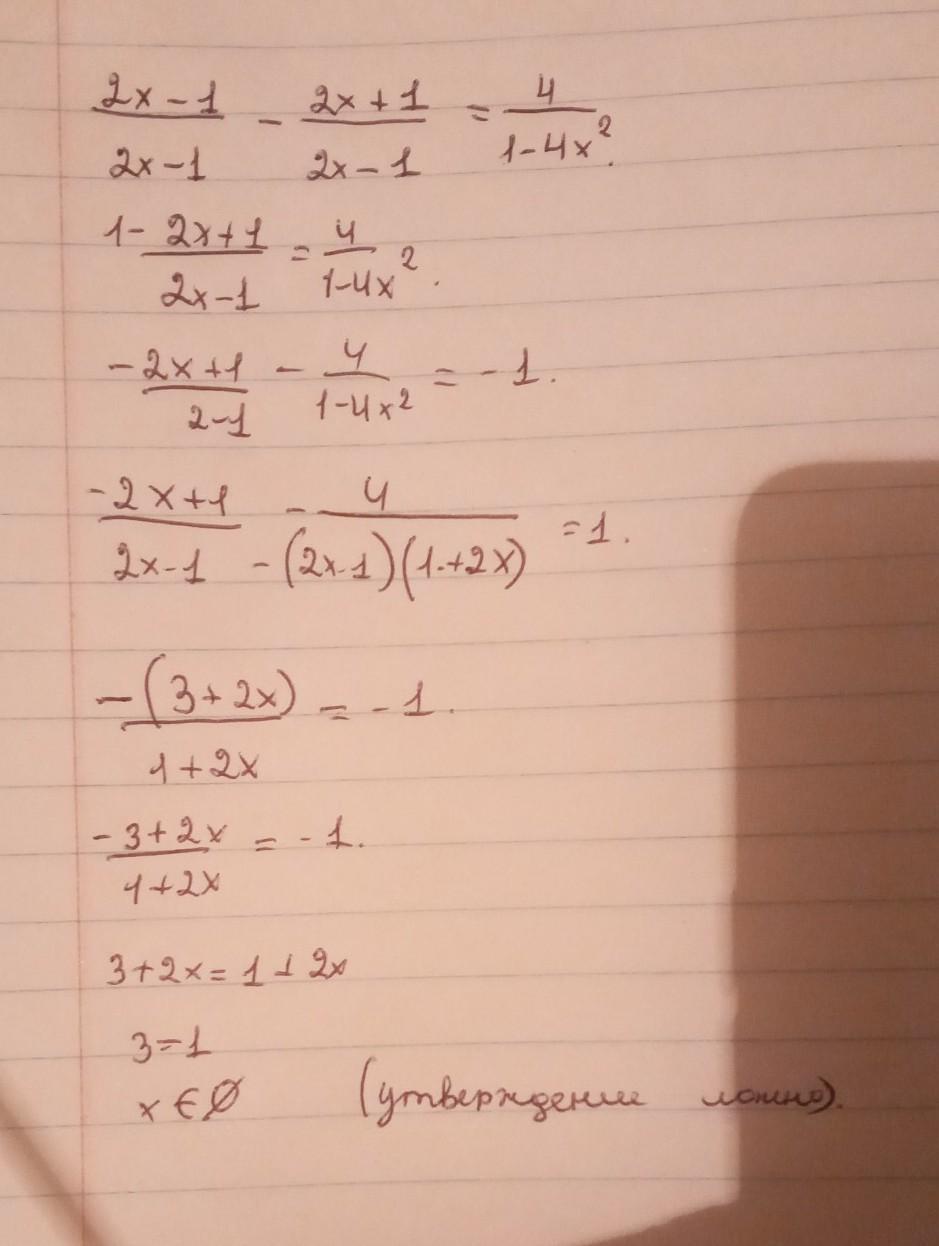 (2x-1)/(2x-1) - (2x+1)/(2x-1) = 4/(1-4x²).
1 - (2x+1)/(2x-1) = 4/(1-4x²).
- (2x+1)/(2-1) - 4/(1-4x²) = -1.
- (2x+1)/(2x-1) - 4/(-(2x-1)(1+2x)) = 1.
-(3+2x)/(1+2x) = -1.
- (3+2x)/(1+2x) = -1.
3+2x = 1+2x
3=1
x ∈ ∅ (утверждение ложно).